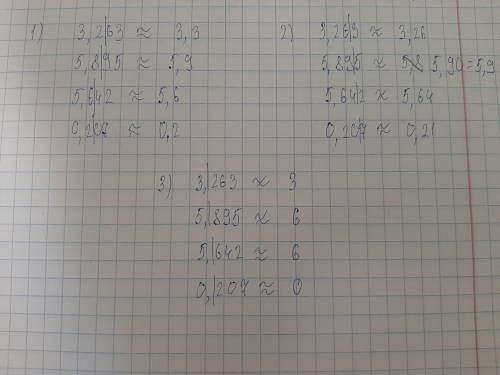 1) 3,2|63 ≈ 3,3
5,8|95 ≈ 5,9
5,6|42 ≈ 5,6
0,2|07 ≈ 0,2
2) 3,26|3 ≈ 3,26
5,89|5 ≈ 5,90=5,9
5,64|2 ≈ 5,64
0,20|7 ≈ 0,21
3) 3,|263 ≈ 3
5,|895 ≈ 6
5,|642 ≈ 6
0,|207 ≈ 0